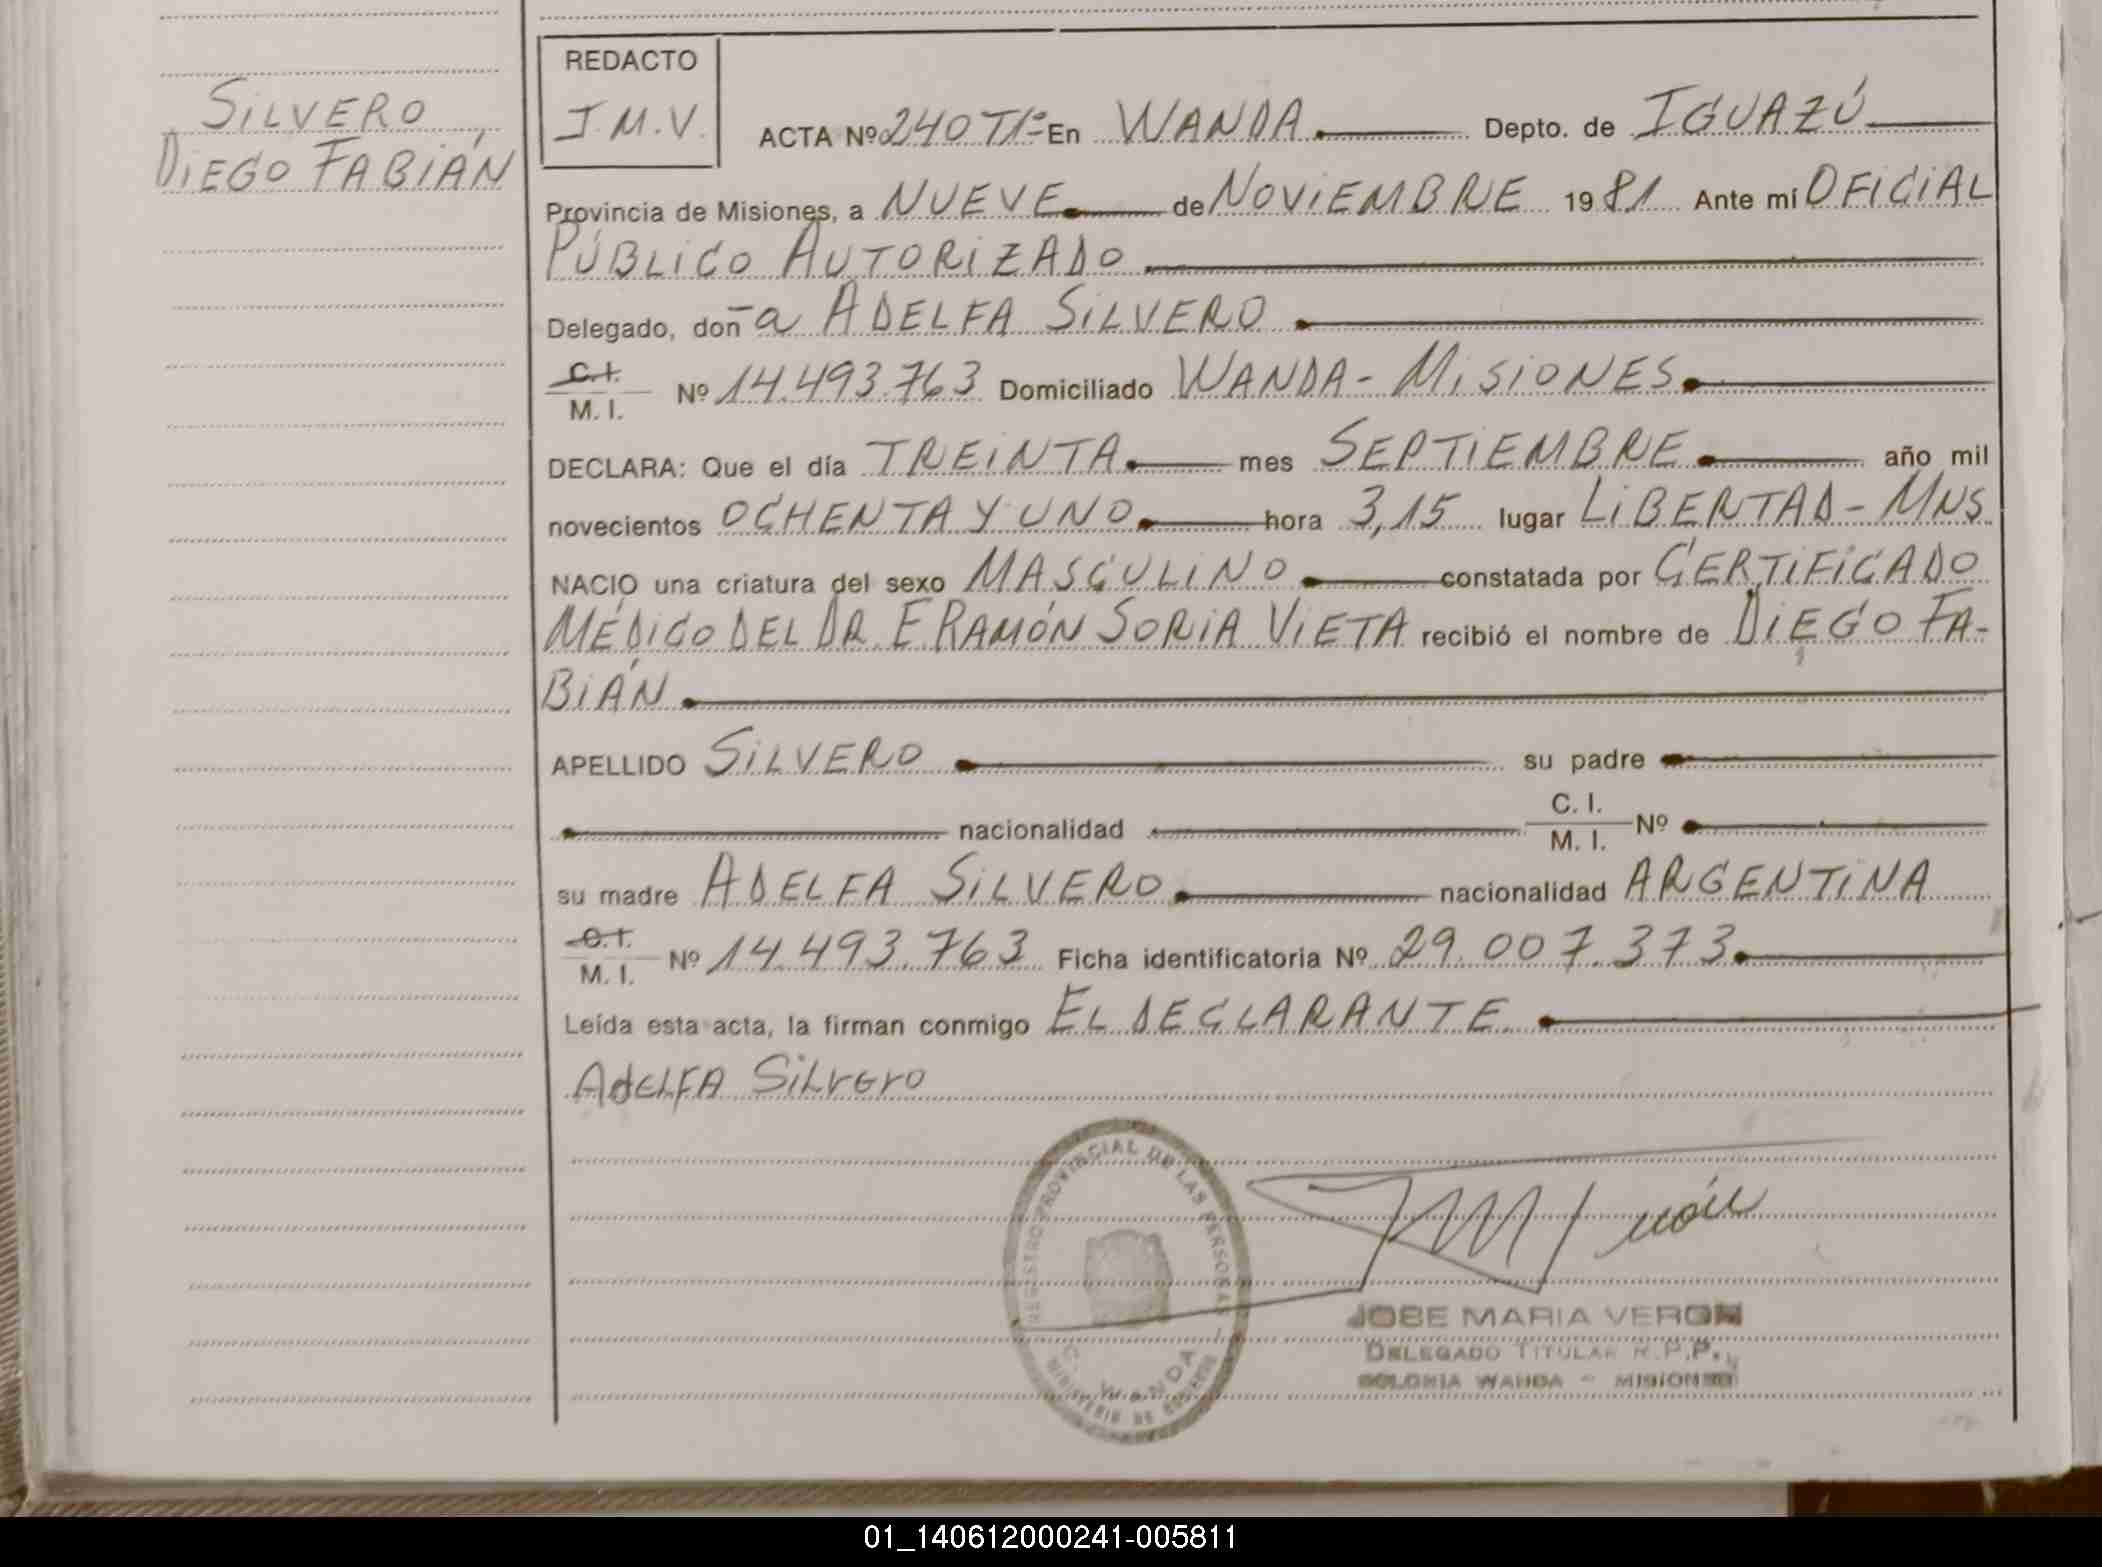 SILVERO
DIEGO FABIÁN
REDACTO
J.M.V.
ACTA Nº 240 TIº En WANDA Depto. de IGUAZÚ
Provincia de Misiones, a NUEVE de NOVIEMBRE 1981 Ante mí OFICIAL
PÚBLICO AUTORIZADO
Delegado, doña ADELFA SILVERO
C.I.
M. I. Nº 14.493.763 Domiciliado WANDA - MISIONES
DECLARA: Que el día TREINTA mes SEPTIEMBRE año mil
novecientos OCHENTA Y UNO hora 3,15 lugar LIBERTAD - MNS
NACIO una criatura del sexo MASCULINO constatada por CERTIFICADO
MÉDICO DEL DR. E RAMÓN SORIA VIETA recibió el nombre de DIEGO FA-
BIÁN
APELLIDO SILVERO su padre
nacionalidad C. I.
M. I. Nº
su madre ADELFA SILVERO nacionalidad ARGENTINA
C.I.
M. I. Nº 14.493.763 Ficha identificatoria Nº 29.007.373
Leída esta acta, la firman conmigo EL DECLARANTE
ADELFA Silvero
REGISTRO PROVINCIAL DE LAS PERSONAS
WANDA
MINISTERIO DE GOBIERNO
JOSE MARIA VERON
DELEGADO TITULAR R.P.P.
COLONIA WANDA - MISIONES
01_140612000241-005811